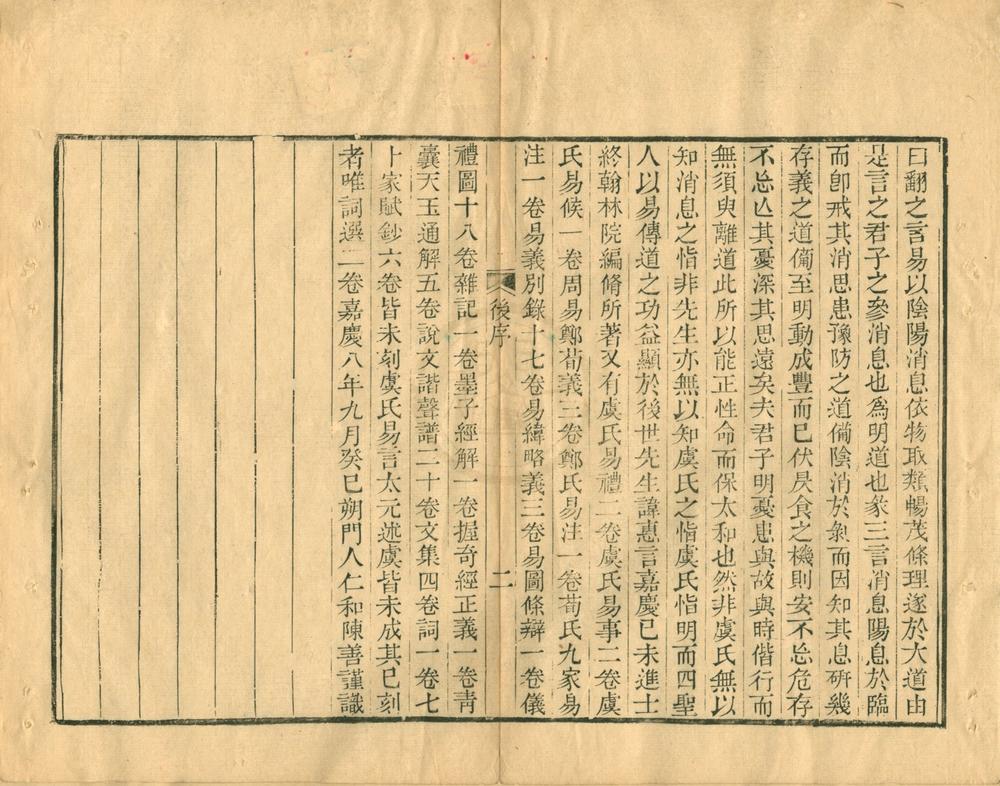 曰翻之言易以陰陽消息依物取類暢茂條理遂於大道由
是言之君子之參消息也爲明道也彖三言消息陽息於臨
而卽戒其消思患豫防之道僃陰消於剝而因知其息硏幾
存義之道僃至明動成豐而巳伏昃食之機則安不忘危存
不忘亾其憂深其思遠矣夫君子明憂患與故與時偕行而
無須臾離道此所以能正性命而保太和也然非虞氏無以
知消息之恉非先生亦無以知虞氏之恉虞氏恉明而四聖
人以易傳道之功益顯於後世先生諱惠言嘉慶己未進士
終翰林院編脩所著又有虞氏易禮二卷虞氏易事二卷虞
氏易候一卷周易鄭荀義三卷鄭氏易注一卷荀氏九家易
注一卷易義別錄十七卷易緯略義三卷易圖條辯一卷儀
後序
二
禮圖十八卷雜記一卷墨子經解一卷握奇經正義一卷靑
囊天玉通解五卷說文諧聲譜二十卷文集四卷詞一卷七
十家賦鈔六卷皆未刻虞氏易言太元述虞皆未成其已刻
者唯詞選二卷嘉慶八年九月癸巳朔門人仁和陳善謹識